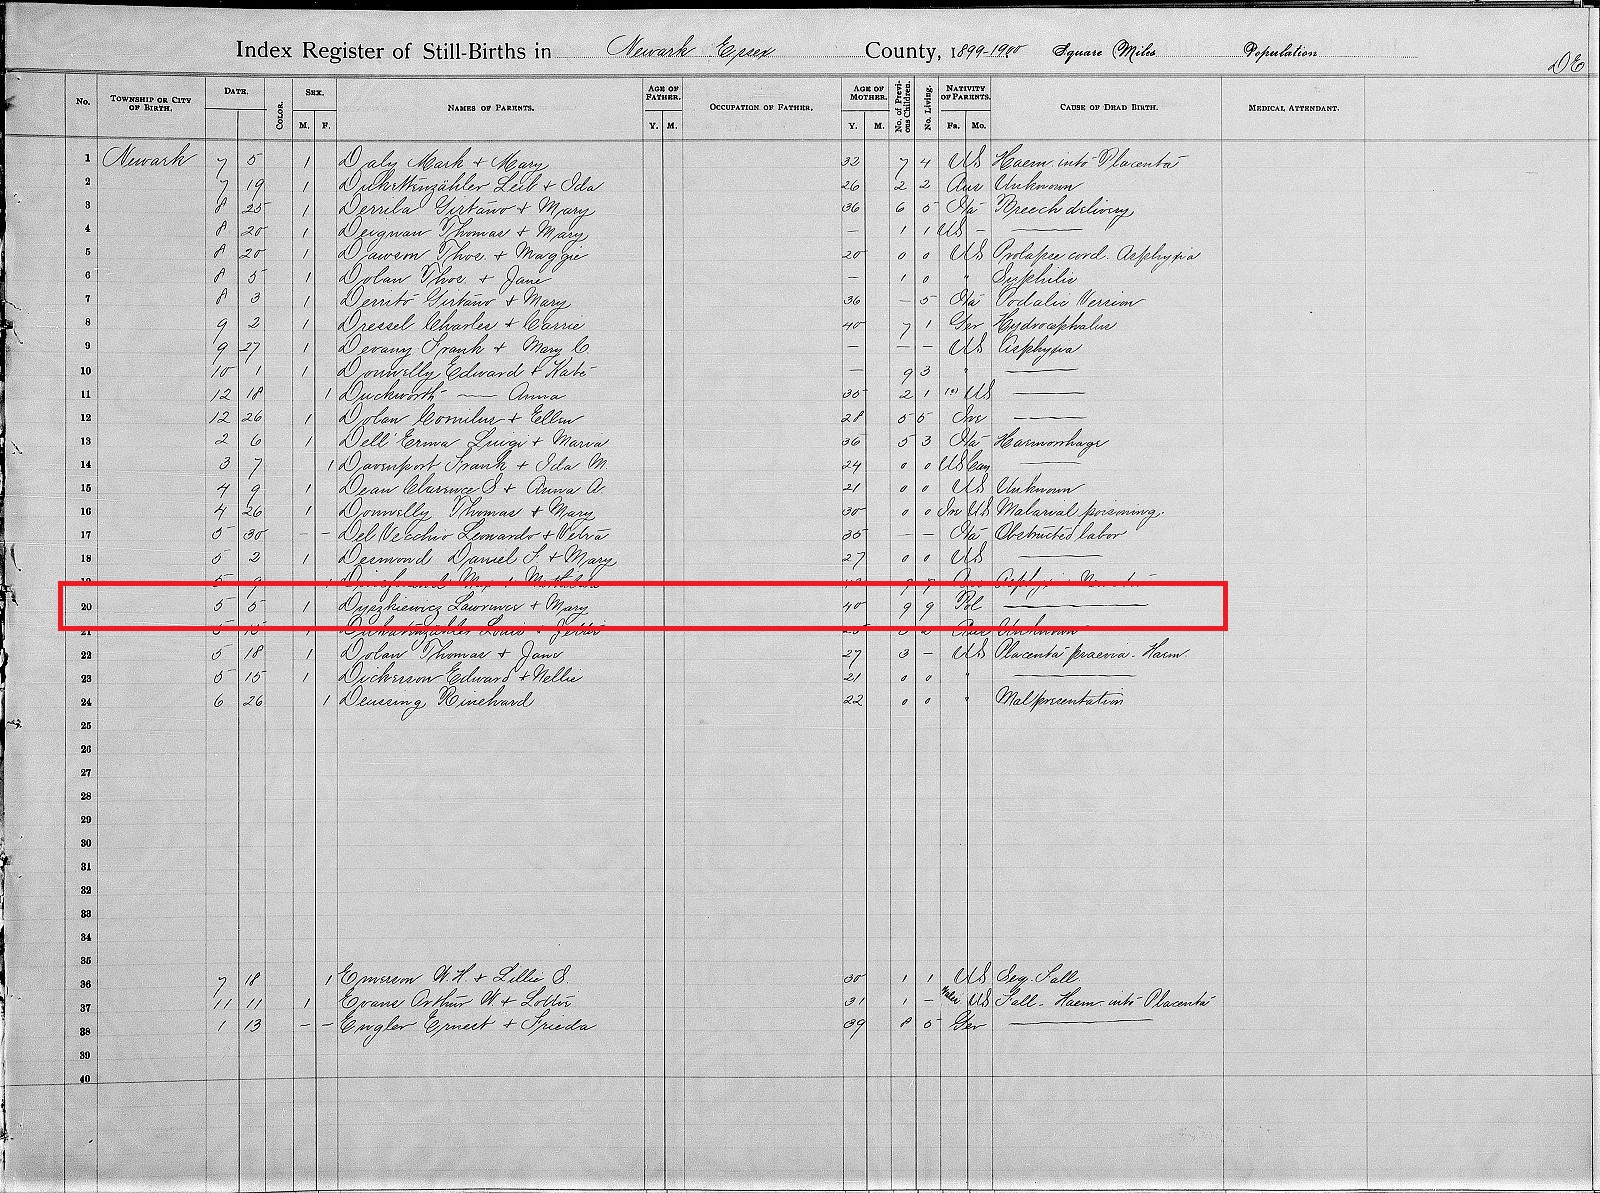 Index Register of Still-Births in Newark Essex County, 1899-1900 Square Miles Population
DE
No. TOWNSHIP OR CITY OF BIRTH. DATE. COLOR. SEX. M. F. NAMES OF PARENTS. AGE OF FATHER. Y. M. OCCUPATION OF FATHER. AGE OF MOTHER. Y. M. No. of Previous Children. No. Living. NATIVITY OF PARENTS. Fa. Mo. CAUSE OF DEAD BIRTH. MEDICAL ATTENDANT.
1 Newark 7 5 1 Daly Mark + Mary 32 7 4 US Haem. into Placenta
2 7 19 1 Leib + Ida 26 2 2 Aus Unknown
3 8 25 1 Derrila Girtano + Mary 36 6 5 Ita Breech delivery
4 8 20 1 Deignan Thomas + Mary — 1 1 US — ——
5 8 20 1 Dawson Thos. + Maggie 20 0 0 US Prolapse cord. Asphyxia
6 8 5 1 Dolan Thos. + Jane — 1 0 " Syphilis
7 8 3 1 Derrito Girtano + Mary 36 — 5 Ita Podalic Version
8 9 2 1 Dressel Charles + Carrie 40 7 1 Ger Hydrocephalus
9 9 27 1 Devany Frank + Mary C. — — — US Asphyxia
10 10 1 1 Donnelly Edward + Kate — 9 3 " ——
11 12 18 1 Duckworth —— Anna 35 2 1 US ——
12 12 26 1 Dolan Cornelius + Ellen 28 5 5 Ire ——
13 2 6 1 Dell' Erma Luigi + Maria 36 5 3 Ita Haemorrhage
14 3 7 1 Davenport Frank + Ida M. 24 0 0 US Can ——
15 4 9 1 Dean Clarence S + Anna A. 21 0 0 US Unknown
16 4 26 1 Donnelly Thomas + Mary 30 0 0 In US Malarial poisoning.
17 5 30 — — Del Vecchio Leonardo + Vetra 35 — — Ita Obstructed labor
18 5 2 1 Desmond Daniel F. + Mary 27 0 0 US ——
19 5 9 1
20 5 5 1 Dyszkiewicz Lawrence + Mary 40 9 9 Pol ——
21 5 15 1 Unknown
22 5 18 1 Dolan Thomas + Jane 27 3 — US Placenta praevia - Haem.
23 5 15 1 Dickerson Edward + Nellie 21 0 0 " ——
24 6 26 1 Deussing Rinehard 22 0 0 " Malpresentation
25
26
27
28
29
30
31
32
33
34
35
36 7 18 1 Emerson W. H. + Lillie S. 30 1 1 US Fall
37 11 11 1 Evans Arthur W. + Lottie 31 1 — Wales US Fall - Haem. into Placenta
38 1 13 — — Engler Ernest + Frieda 39 8 5 Ger ——
39
40